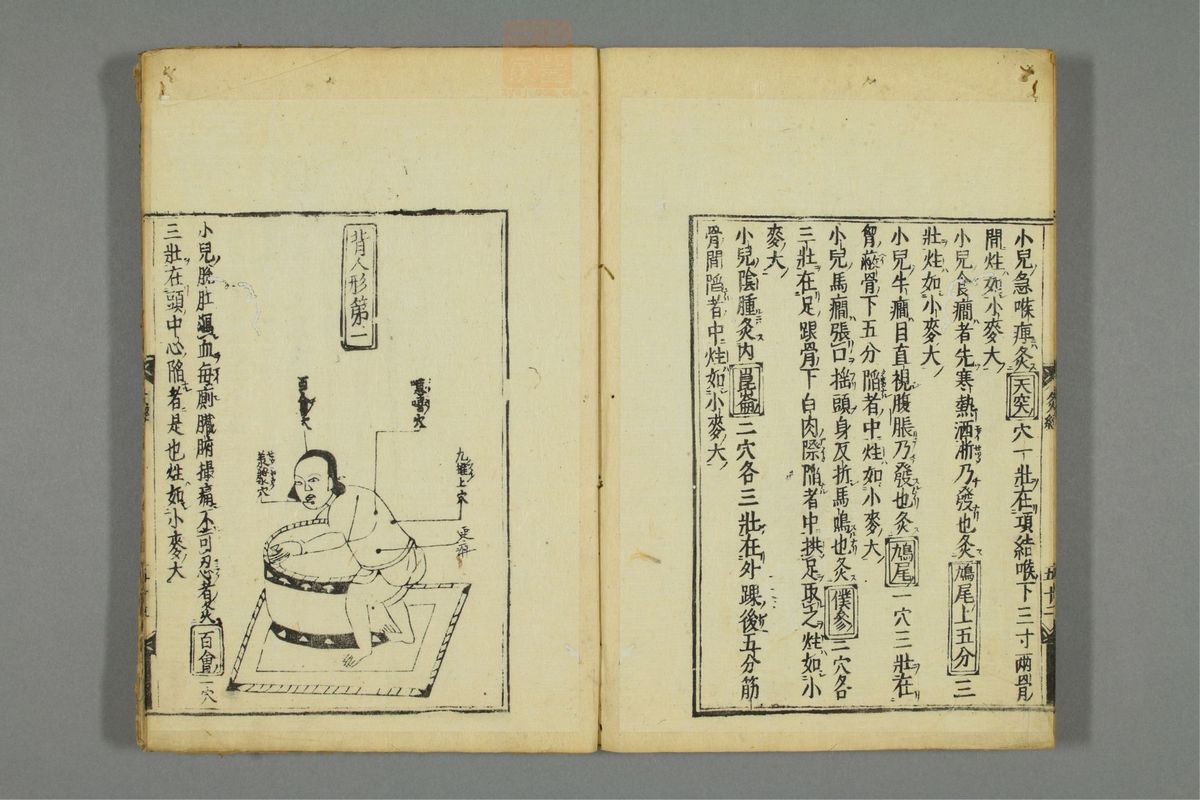 小兒急喉痺灸天突穴一壯在項結喉下三寸兩骨
間炷如小麥大
小兒食癇者先寒熱洒淅乃發也灸鳩尾上五分三
壯炷如小麥大
小兒牛癇目直視腹脹乃發也灸鳩尾一穴三壯在
胷蔽骨下五分陷者中炷如小麥大
小兒馬癇張口揺頭身反折馬鳴也灸僕參二穴各
三壯在足跟骨下白肉際陷者中拱足取之炷如小
麥大
小兒陰腫灸內崑崙二穴各三壯在外踝後五分筋
骨間陷者中炷如小麥大
灸經
五十二
背人形第一
百會穴
譩譆穴
九椎上穴
小兒脫肛瀉血每廁臟腑撮痛不可忍者灸百會一穴
三壯在頭中心陷者是也炷如小麥大